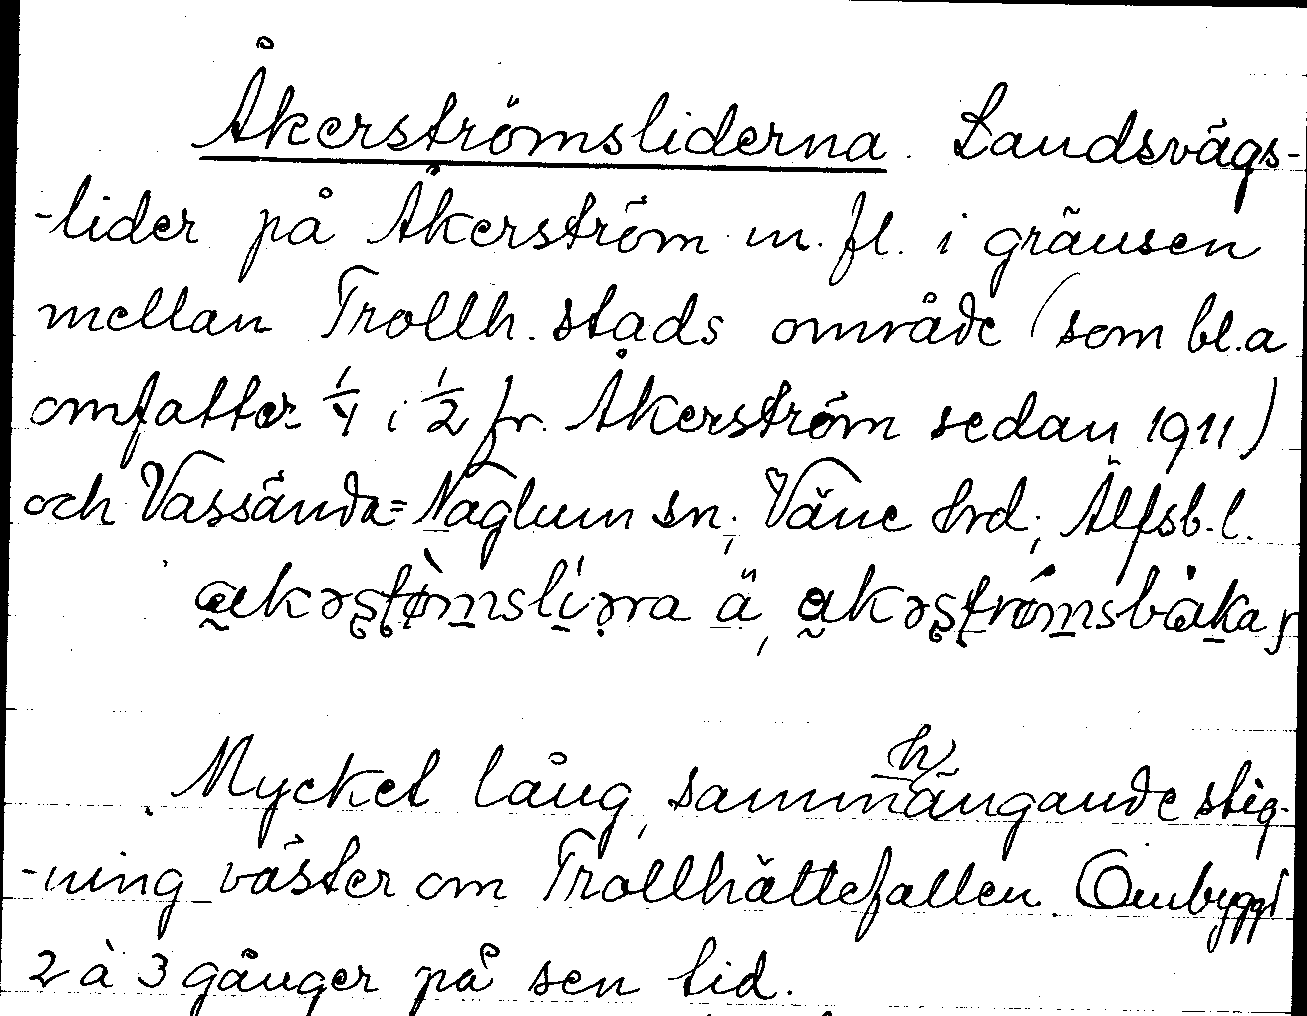 Åkerströmsliderna. Landsvägs-
-lider på Åkerström m. fl. i gränsen
mellan Trollh. stads område (som bl.a
omfatter 1/4 i 1/2 fr. Åkerström sedan 1911)
och Vassända=Naglum sn; Väne hrd; Älfsb. l.
ä,
Mycket lång, sammhängande stig-
-ning väster om Trollhättefallen. Ombyggt
2 à 3 gånger på sen tid.